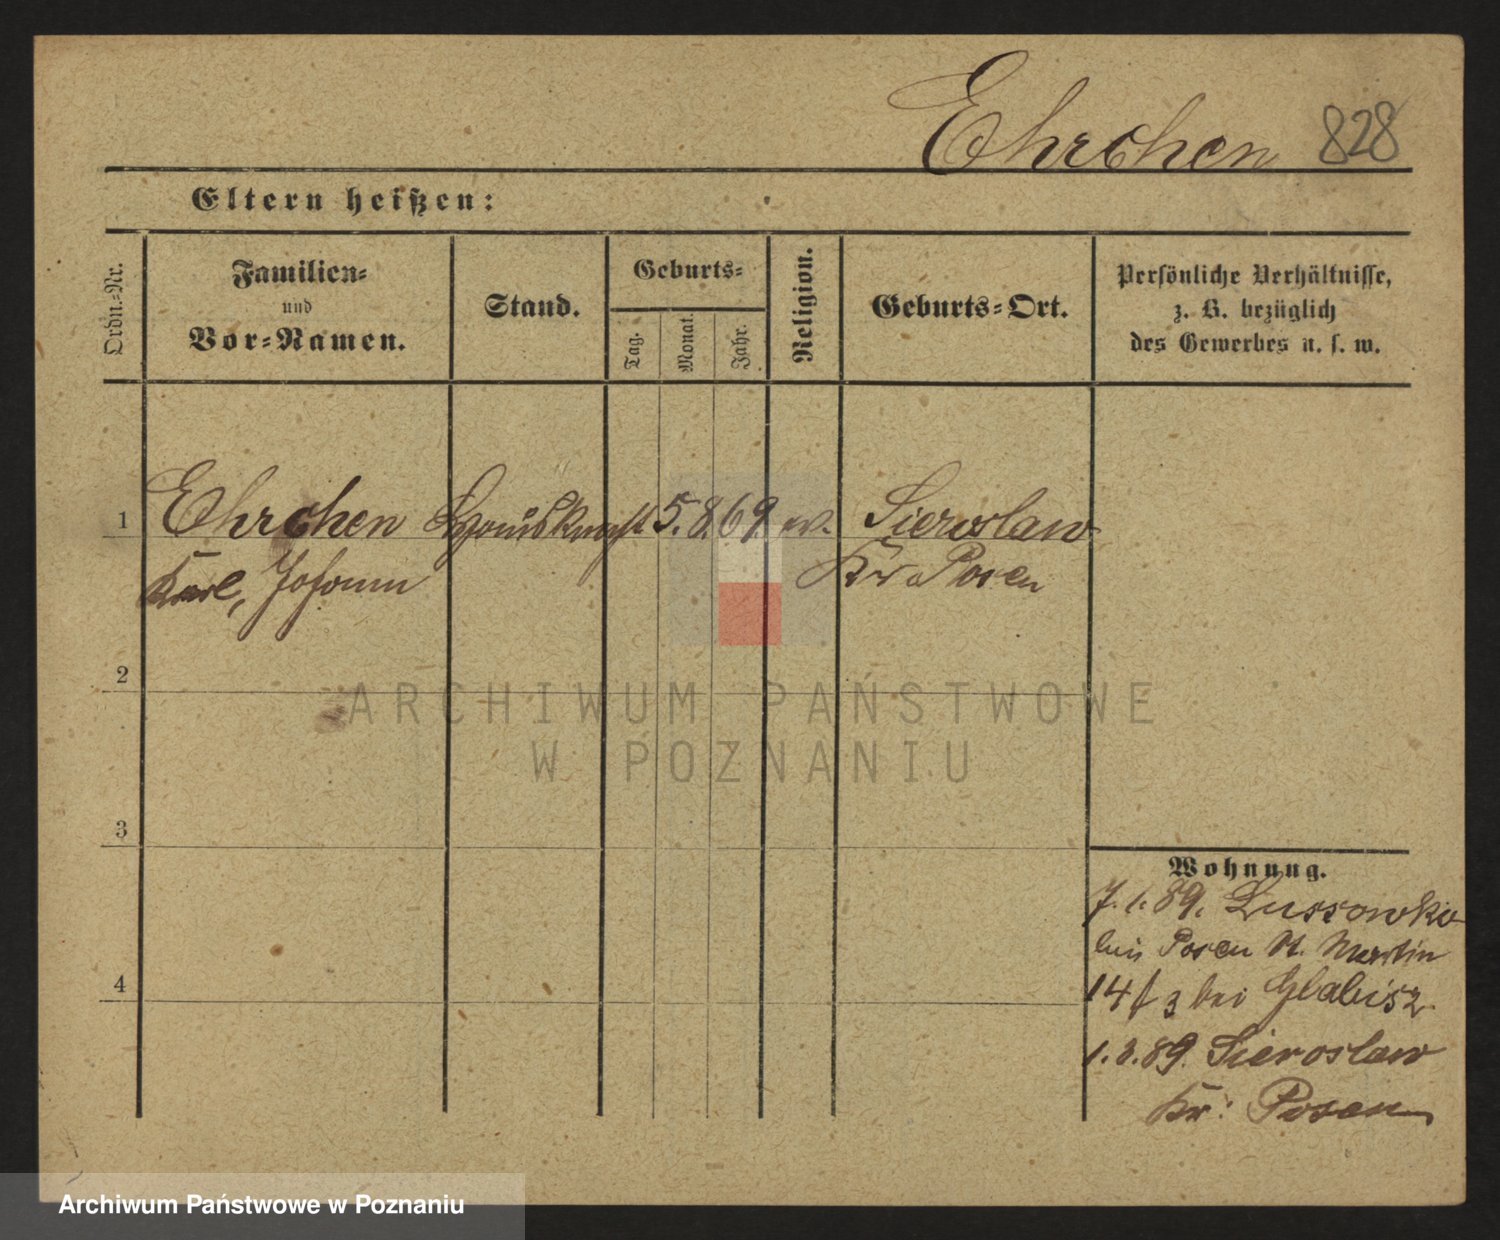 Ehrchen 828
Eltern heißen:
Ordn.=Nr.
Familien=
und
Vor=Namen.
Stand.
Geburts=
Tag.
Monat.
Jahr.
Religion.
Geburts=Ort.
Persönliche Verhältnisse,
z. B. bezüglich
des Gewerbes u. s. w.
1 Ehrchen Hausknecht 5. 8. 69. ev. Sieroslaw
Karl, Johann Kr Posen
2
3
4
Wohnung.
7. 1. 89. Lussowko
Posen St. Martin
14 / 3 bei Glabisz
1. 3. 89. Sieroslaw
Kr: Posen
ARCHIWUM PAŃSTWOWE
W POZNANIU
Archiwum Państwowe w Poznaniu